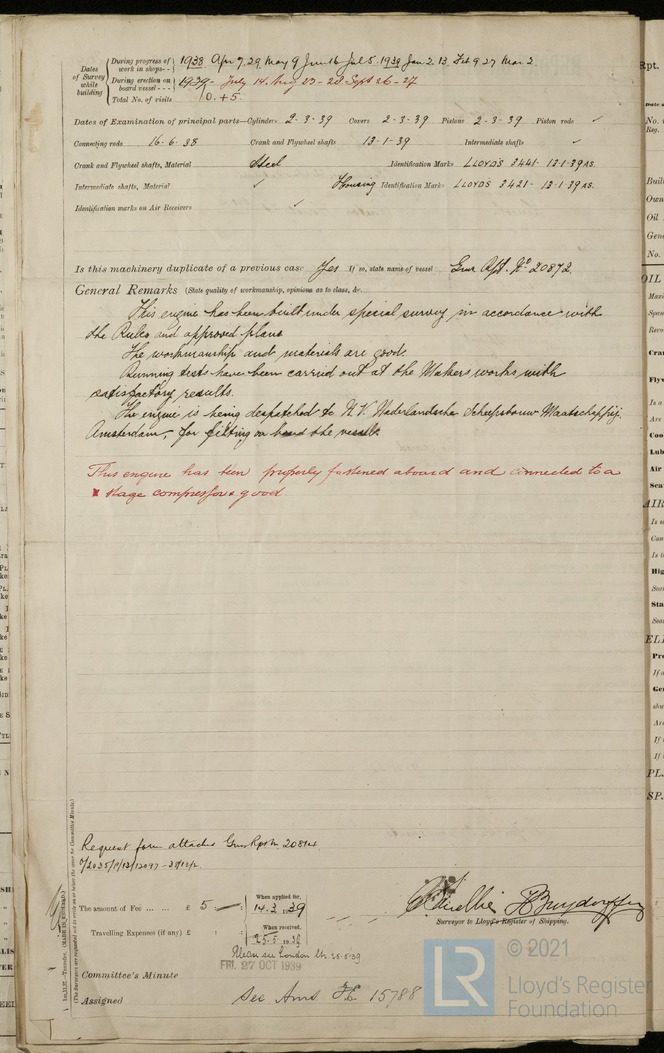 Dates of Survey while building
During progress of work in shops - - 1938 Apr 7, 29, May 9 Jun 16 Jul 5. 1939 Jan 2. 13, Feb 9. 27 Mar 2
During erection on board vessel - - - 1939 - July 14. Aug 23-28 Sept 26-27
Total No. of visits 10. + 5.
Dates of Examination of principal parts—Cylinders 2-3-39 Covers 2-3-39 Pistons 2-3-39 Piston rods ✓
Connecting rods 16-6-38 Crank and Flywheel shafts 13-1-39 Intermediate shafts ✓
Crank and Flywheel shafts, Material Steel Identification Marks LLOYD'S 3441- 13-1-39 AS.
Intermediate shafts, Material ✓ Housing Identification Marks LLOYDS 3421- 13-1-39 AS.
Identification marks on Air Receivers ✓
Is this machinery duplicate of a previous case Yes If so, state name of vessel Gnr Rpt. No 20872
General Remarks (State quality of workmanship, opinions as to class, &c.
This engine has been built under special survey in accordance with
the Rules and approved plans
The workmanship and materials are good.
Running tests have been carried out at the Makers works with
satisfactory results.
The engine is being despatched to N.V. Nederlandsche Scheepsbouw Maatschappij,
Amsterdam, for fitting on board the vessel.
This engine has been properly fastened aboard and connected to a
stage compressor good
Request form attached Gnr Rpt No 20814
The amount of Fee ... ... £ 5 — : When applied for, 14-3 1939
Travelling Expenses (if any) £ : : When received, 25-5 1939
Surveyor to Lloyd's Register of Shipping.
FRI. 27 OCT 1939
Committee's Minute
Assigned See Ams F.E. 15788
© 2021
LR
Lloyd's Register
Foundation